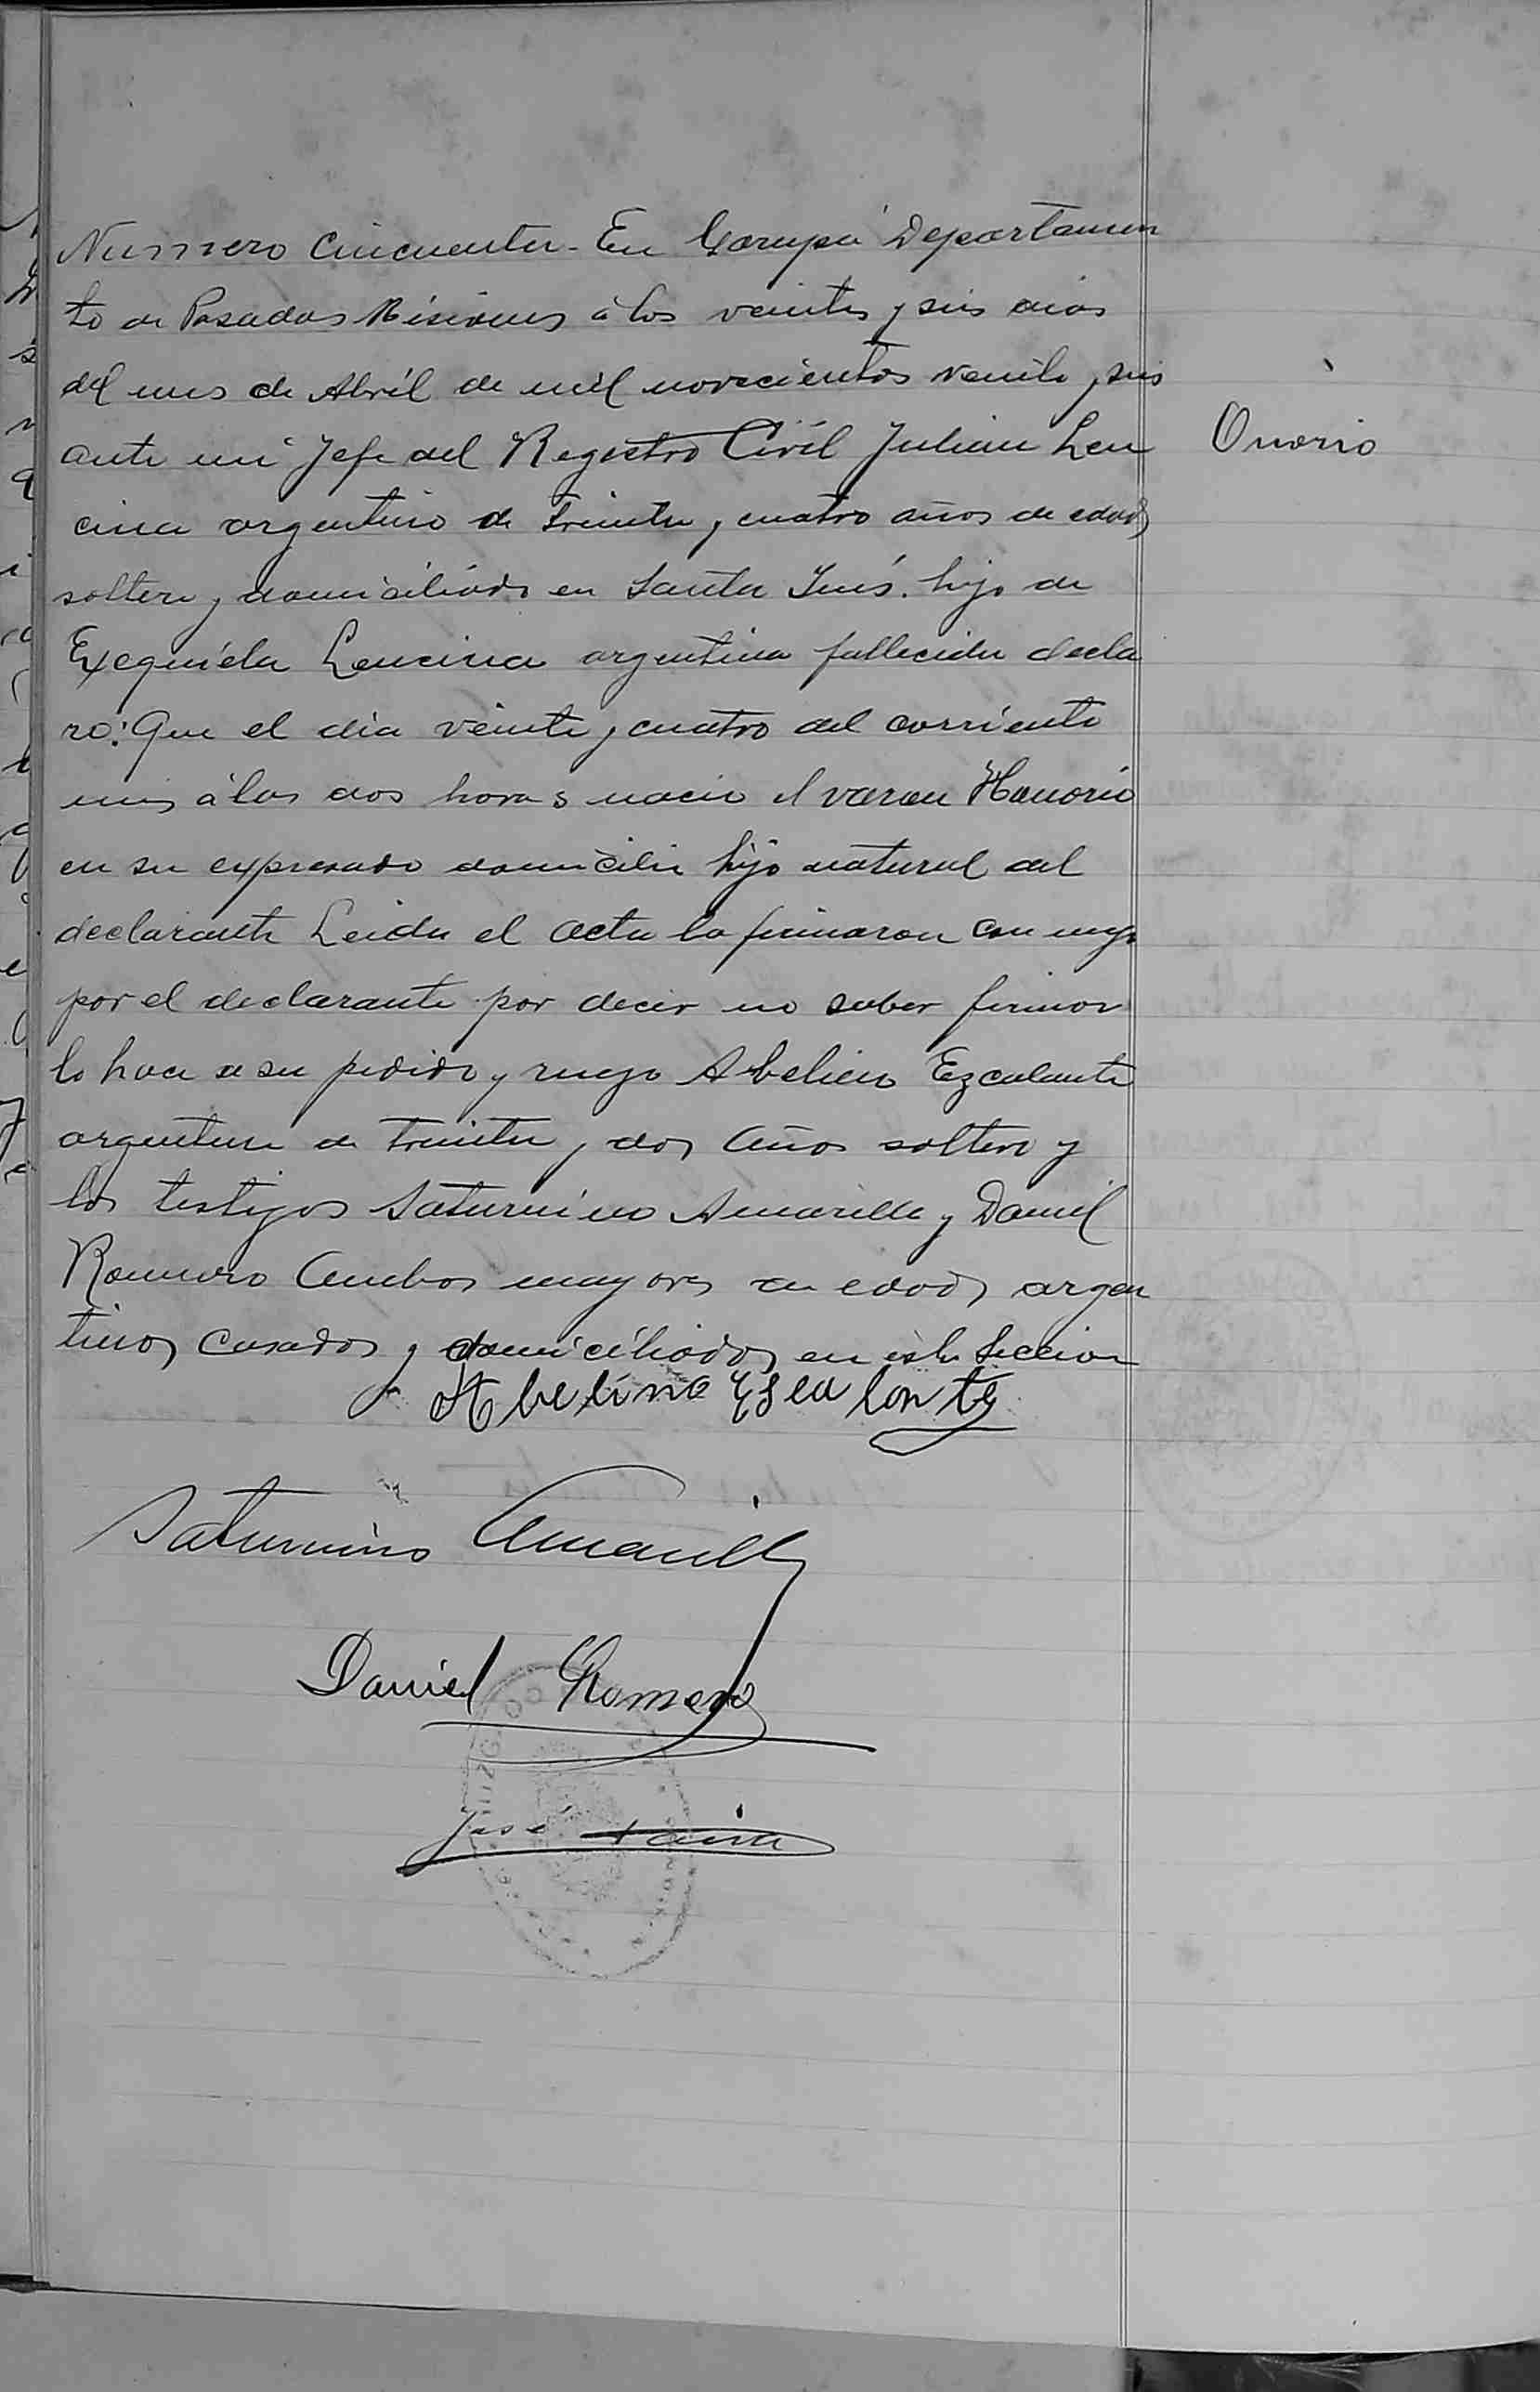 Numero cincuenta - En Garupá Departamen
to de Posadas Misiones á los veinte y seis dias
del mes de Abril de mil novecientos veinte y seis
ante mi Jefe del Registro Civil Julian Len
cina argentino de treinta y cuatro años de edad
soltero y domiciliado en Santa Inés. hijo de
Exequiela Lencina argentina fallecida decla
ro: Que el dia veinte y cuatro del corriente
mes á las dos horas nacio el varon Honorio
en su expresado domicilio hijo natural del
declarante Leida el acta la firmaron conmigo
por el declarante por decir no saber firmar
lo hace a su pedido y ruego Abelino Ezcalante
argentino de treinta y dos años soltero y
los testigos Saturnino Amarilla y Daniel
Romero ambos mayores de edad argen
tinos casados y domiciliados en esta Seccion
Onorio
Abelino Escalante
Saturnino Amarilla
Daniel Romero
José